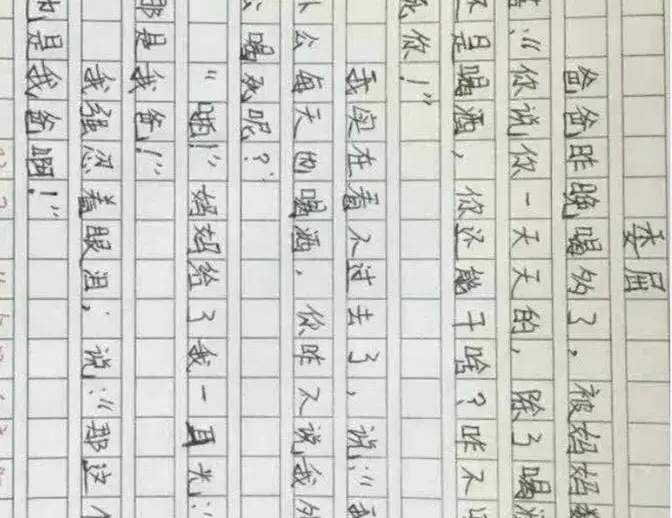 委屈
爸爸昨晚喝多了,被妈妈数
落:“你说你一天天的,除了喝酒
还是喝酒,你还能干啥?咋不喝
死你!”
我实在看不过去了,说:“我
外公每天也喝酒,你咋不说我外
公喝死呢?”
“啪!”妈妈给了我一耳光:“
那是我爸!”
我强忍着眼泪,说:“那这个
也是我爸啊!”